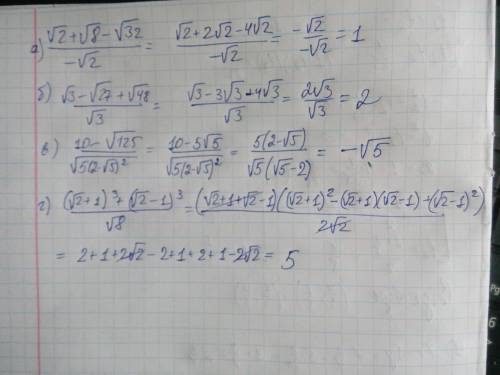 а) (√2+√8−√32)/(−√2) = (√2+2√2−4√2)/(−√2) = (−√2)/(−√2) = 1
б) (√3−√27+√48)/√3 = (√3−3√3+4√3)/√3 = 2√3/√3 = 2
в) (10−√125)/√(5(2−√5)²) = (10−5√5)/√(5(2−√5)²) = 5(2−√5)/(√5(√5−2)) = −√5
г) ((√2+1)³+(√2−1)³)/√8 = (√2+1+√2−1)((√2+1)²−(√2+1)(√2−1)+(√2−1)²)/(2√2)
= 2+1+2√2−2+1+2+1−2√2 = 5